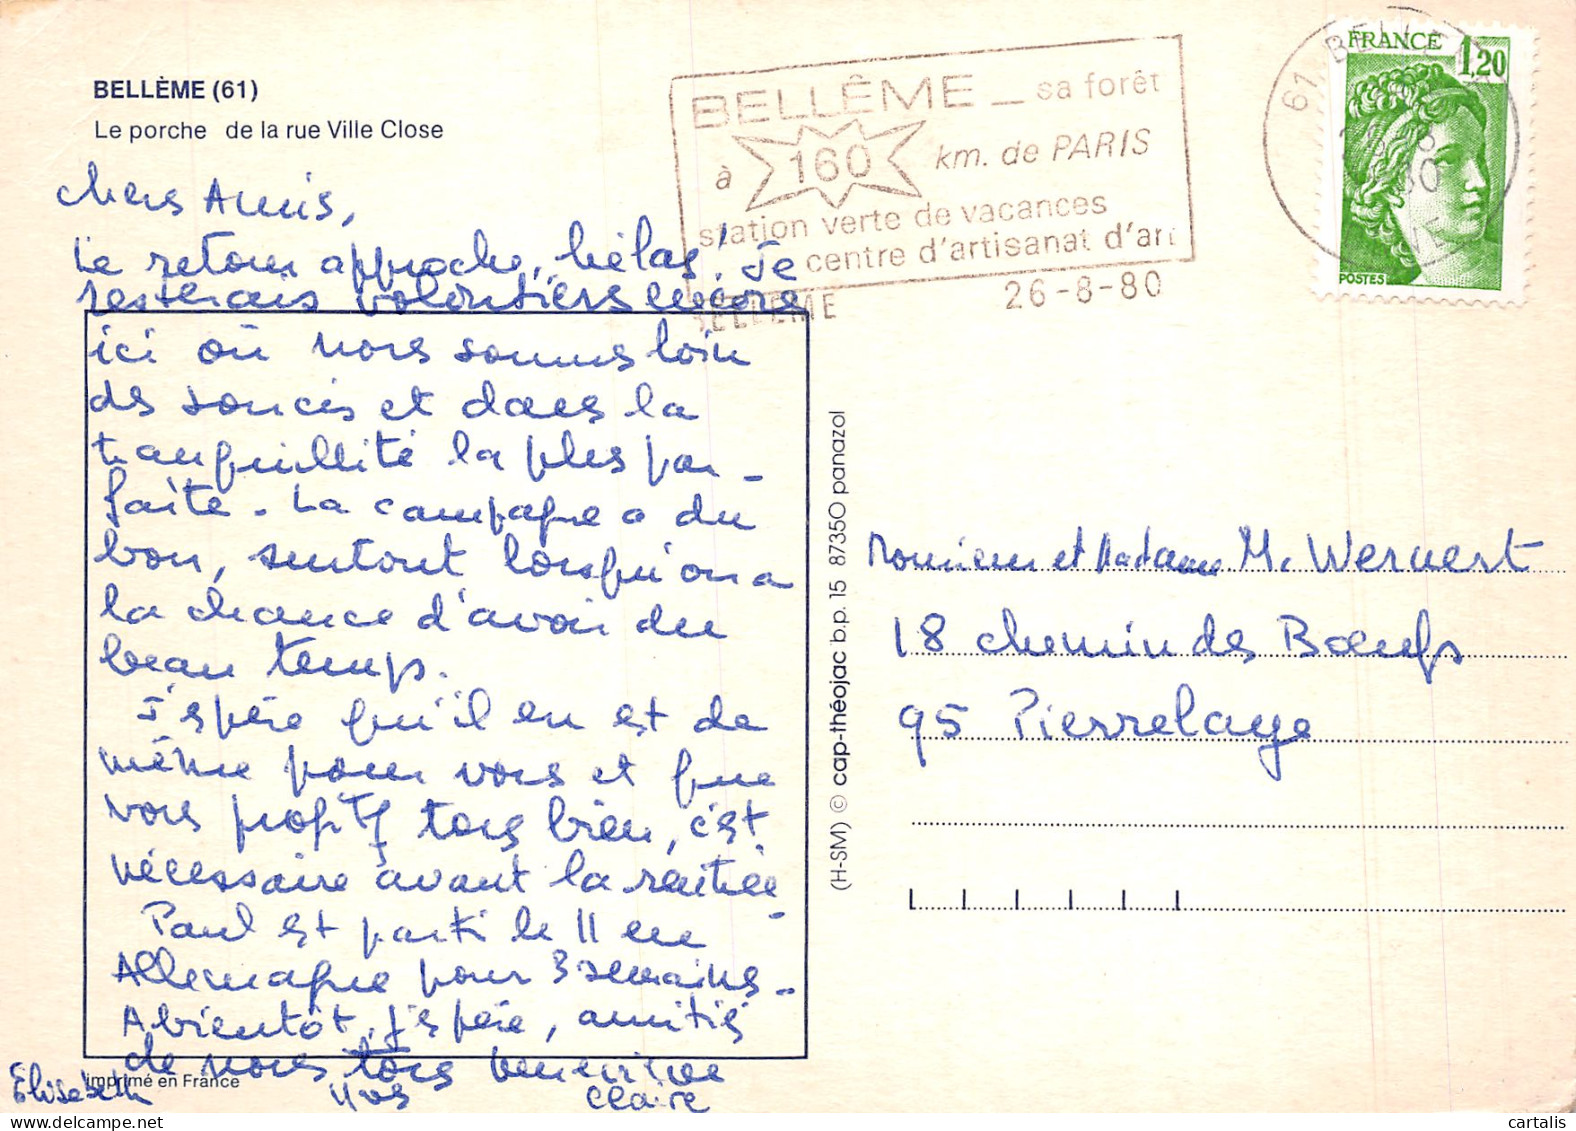 BELLÈME (61)
Le porche de la rue Ville Close
BELLÊME _ sa forêt
à 160 km. de PARIS
station verte de vacances
centre d'artisanat d'art
BELLEME 26-8-80
FRANCE 1,20
POSTES
61 BELLEME
Chers Amis,
Le retour approche, hélas! Je
resterais volontiers encore
ici où nous sommes loin
des soucis et dans la
tranquillité la plus par_
faite. La campagne a du
bon, surtout lorsqu'on a
la chance d'avoir du
beau temps.
J'espère qu'il en est de
même pour vous et que
vous profitez tous bien, c'est
nécessaire avant la rentrée
Paul est parti le 11 en
Allemagne pour 3 semaines_
A bientôt, j'espère, amitiés
de nous tous
Élisabeth Yves Claire
imprimé en France
(H-SM) © cap-théojac b.p. 15 87350 panazol
Monsieur et Madame M. Wernert
18 chemin des Bœufs
95 Pierrelaye
cartalis